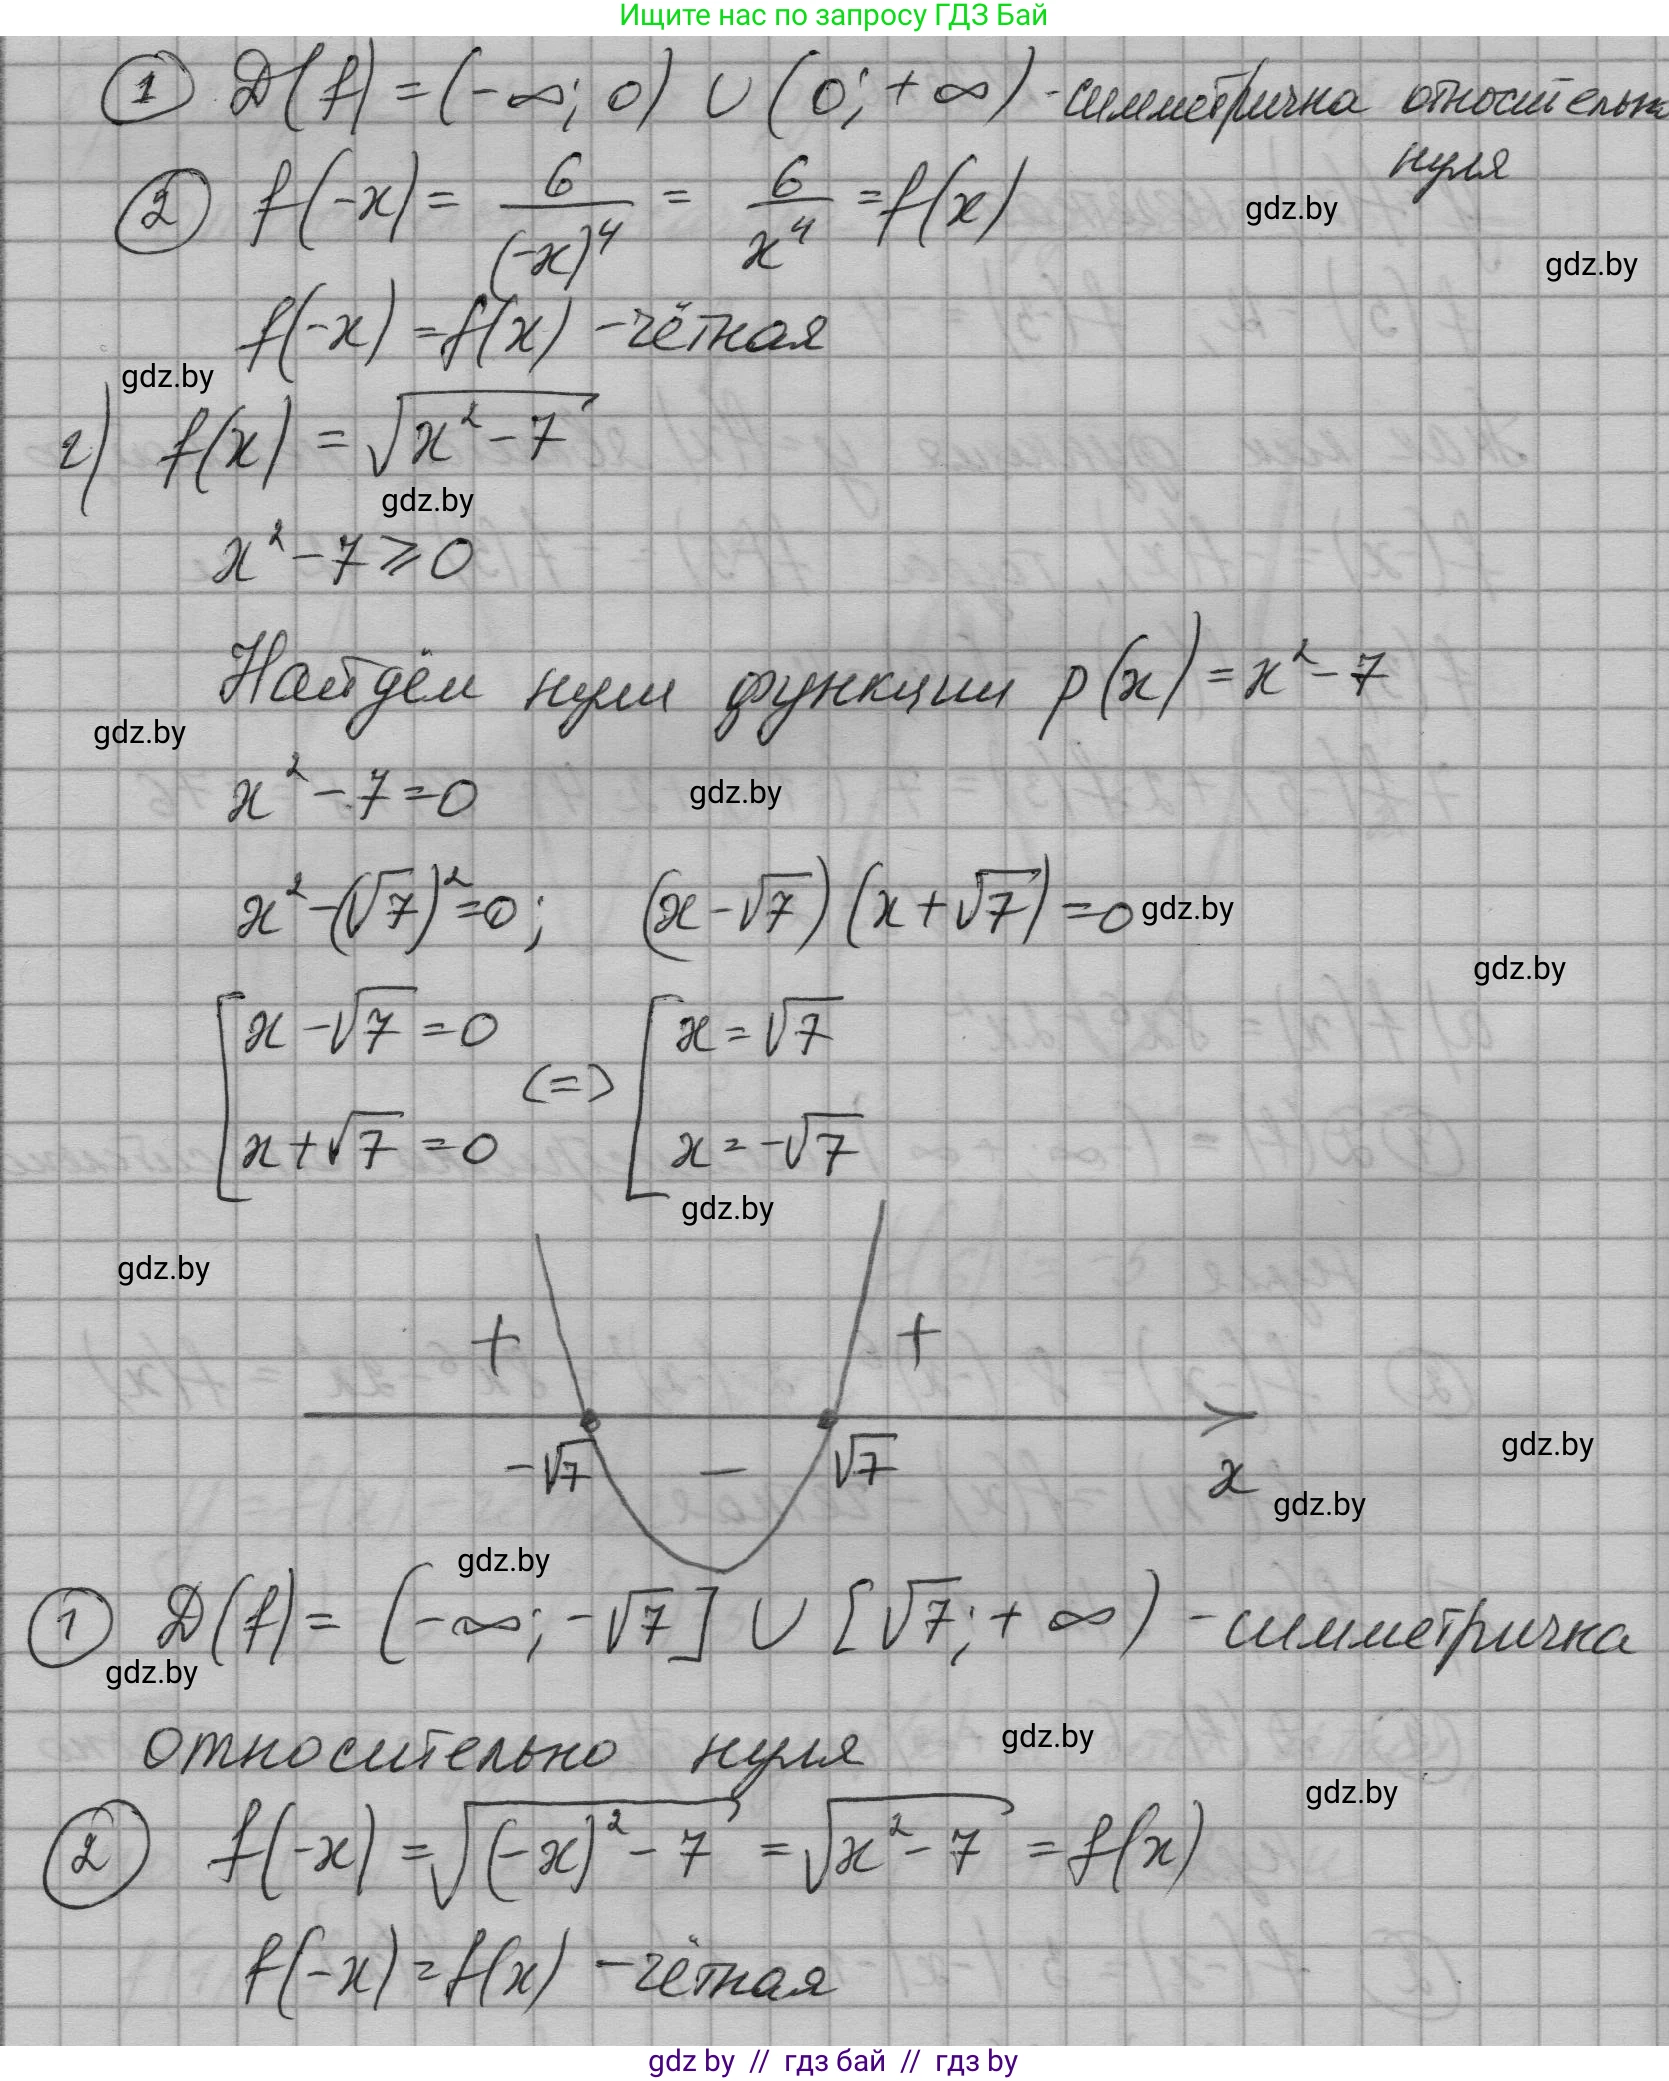 Ищите нас по запросу ГДЗ Бай
① D(f) = (-∞; 0) ∪ (0; +∞) - симметрична относительно
нуля
gdz.by
② f(-x) = 6/(-x)⁴ = 6/x⁴ = f(x)
gdz.by
f(-x) = f(x) - чётная
gdz.by
г) f(x) = √(x² - 7)
gdz.by
x² - 7 ⩾ 0
Найдём нули функции p(x) = x² - 7
gdz.by
x² - 7 = 0
gdz.by
x² - (√7)² = 0; (x - √7)(x + √7) = 0
gdz.by
gdz.by
[ x - √7 = 0 (=) [ x = √7
x + √7 = 0 x = -√7
gdz.by
gdz.by
+ +
-√7 - √7 x
gdz.by
gdz.by
gdz.by
① D(f) = (-∞; -√7] ∪ [√7; +∞) - симметрична
gdz.by
относительно нуля
gdz.by
gdz.by
② f(-x) = √((-x)² - 7) = √(x² - 7) = f(x)
f(-x) = f(x) - чётная
gdz by // гдз бай // гдз by